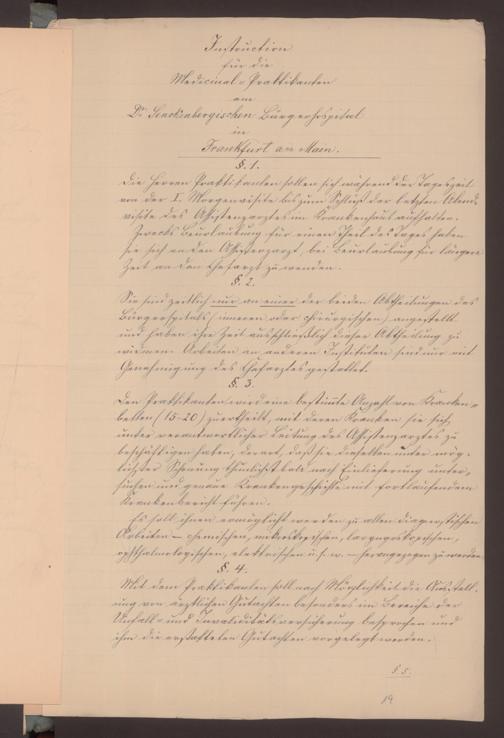 Instruction
für die
Medicinal-Praktikanten
am
Dr Senckenbergischen Bürgerhospital
in
Frankfurt am Main.
§. 1.
Die Herren Praktikanten sollen sich während der Tageszeit
von der I. Morgenvisite bis zum Schluß der letzten Abend-
visite des Assistenzarztes im Krankenhaus aufhalten.
Zwecks Beurlaubung für einen Theil des Tages haben
sie sich an den Assistenzarzt, bei Beurlaubung für längere
Zeit an den Chefarzt zu wenden.
§. 2.
Sie sind zeitlich nur an einer der beiden Abtheilungen des
Bürgerhospitals (inneren oder chirurgischen) angestellt
und haben ihre Zeit ausschließlich dieser Abtheilung zu
widmen. Arbeiten an anderen Instituten sind nur mit
Genehmigung des Chefarztes gestattet.
§. 3.
Den Praktikanten wird eine bestimte Anzahl von Kranken-
betten (15-20) zuertheilt, mit deren Kranken sie sich
unter verantwortlicher Leitung des Assistenzarztes zu
beschäftigen haben, derart, daß sie dieselben unter mög-
lichster Schonung thunlichst bald nach Einlieferung unter-
suchen und genaue Krankengeschichte mit fortlaufendem
Krankenbericht führen.
Es soll ihnen ermöglicht werden zu allen diagnostischen
Arbeiten — chemischen, mikroskopischen, laryngoskopischen,
ophthalmologischen, elektrischen u. s. w. — herangezogen zu werden.
§. 4.
Mit dem Praktikanten soll nach Möglichkeit die Ausstell-
ung von ärztlichen Gutachten besonders im Bereiche der
Unfall- und Invaliditätsversicherung besprochen und
ihm die erstatteten Gutachten vorgelegt werden.
§. 5.
19